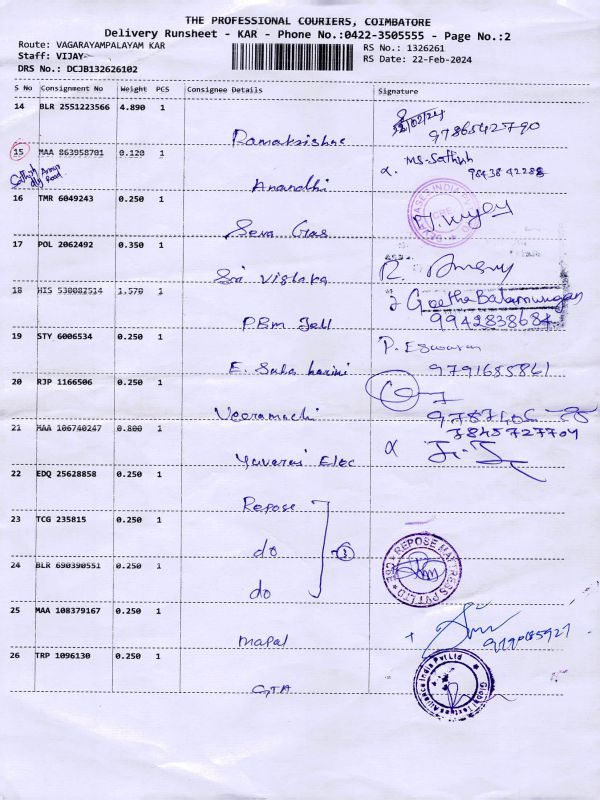 THE PROFESSIONAL COURIERS, COIMBATORE
Delivery Runsheet - KAR - Phone No.:0422-3505555 - Page No.:2
Route: VAGARAYAMPALAYAM KAR
RS No.: 1326261
Staff: VIJAY
RS Date: 22-Feb-2024
DRS No.: DCJB132626102
S No Consignment No Weight PCS Consignee Details Signature
14 BLR 2551223566 4.890 1
Ramakrishna
9786542790
15 MAA 863958701 0.120 1
Anandhi
Ms-Sathish
98438 42288
16 TMR 6049243 0.250 1
Seva Gas
17 POL 2062492 0.350 1
Sri Vishaka
18 HIS 530082514 1.570 1
PBM Tell
Geetha Balamurugan
9942838684
19 STY 6006534 0.250 1
E. Suba harini
P. Eswaran
9791685861
20 RJP 1166506 0.250 1
Veeramachi
21 MAA 106740247 0.800 1
Yuvaraj Elec
7845727704
22 EDQ 25628858 0.250 1
Repose
23 TCG 235815 0.250 1
do
3
24 BLR 690390551 0.250 1
do
REPOSE MATTRESS PVT LTD
CBE
25 MAA 108379167 0.250 1
mapal
26 TRP 1096130 0.250 1
GTA
Global Textiles Alliance India Pvt Ltd